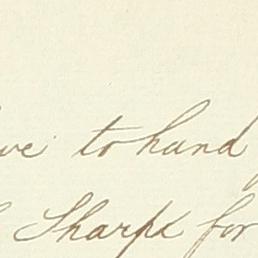 to hand
Sharpe for